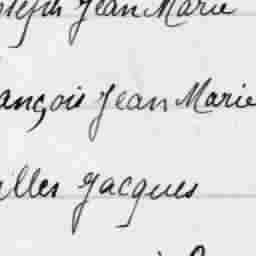 oseph Jean Marie
ançois Jean Marie
illes Jacques